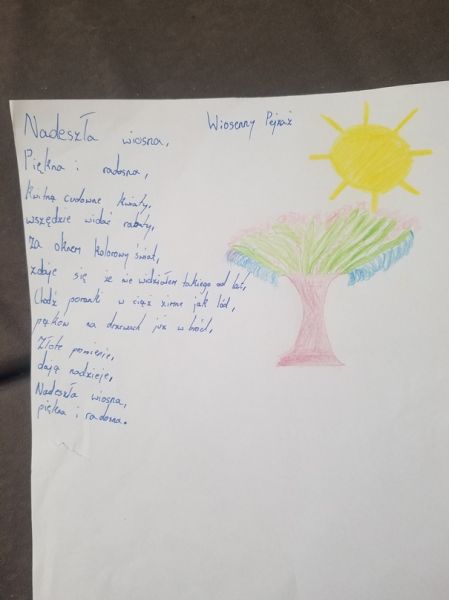 Wiosenny Pejzaż
Nadeszła wiosna,
Piękna i radosna,
Kwitną cudowne kwiaty,
wszędzie widać rabaty,
Za oknem kolorowy świat,
zdaje się że nie widziałem takiego od lat,
Choć poranki w ciąż zimne jak lód,
pąków na drzewach już w bród,
Złote promienie,
dają nadzieje,
Nadeszła wiosna,
piękna i radosna.